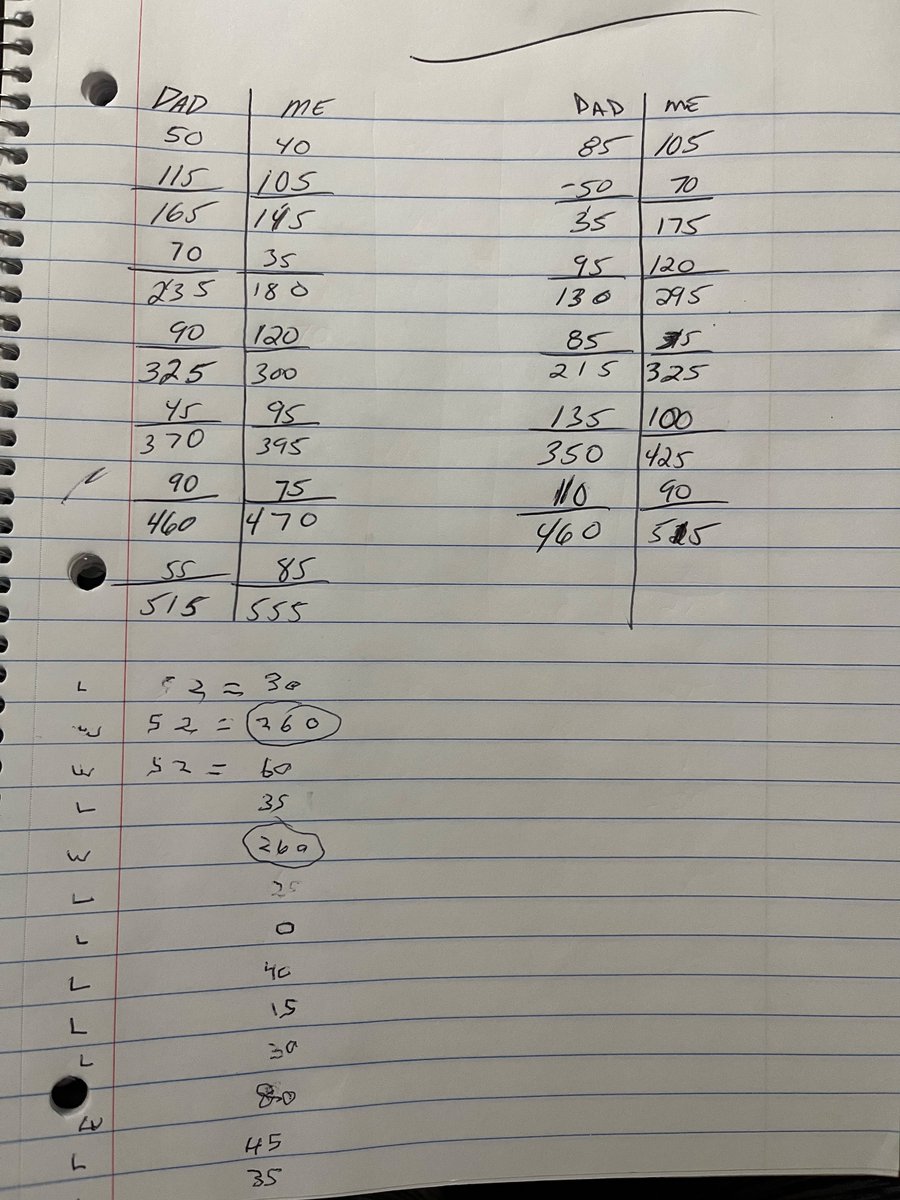 DAD ME
50 40
115 105
165 145
70 35
235 180
90 120
325 300
45 95
370 395
90 75
460 470
55 85
515 555
DAD ME
85 105
-50 70
35 175
95 120
130 295
85
215 325
135 100
350 425
110 90
460 515
L 52 = 30
52 = 260
W 52 = 60
L 35
W 260
L 25
L 0
L 40
L 15
L 30
80
W 45
L 35